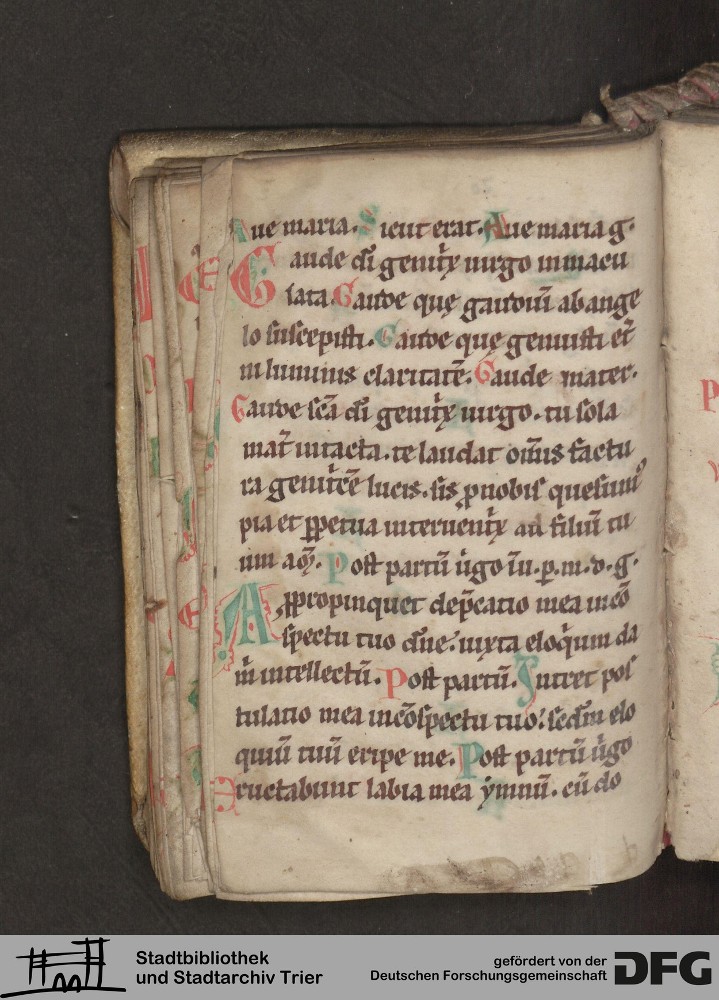 Aue maria. Sicut erat. Aue maria g.
Gaude di genitrix uirgo immacu
lata. Gaude quę gaudiū ab ange
lo suscepisti. Gaude quę genuisti et̄
ni luminis claritatē. Gaude mater.
Gaude scā di genitrix uirgo. tu sola
mat̄ intacta. te laudat om̄is factu
ra genitricē lucis. sis pro nobis quesumus
pia et perpetua interuentrix ad filiū tu
um a. Post partū ūgo īu. p. m. d. g.
Appropinquet dep̄catio mea incō
spectu tuo dn̄e. iuxta eloquium da
m̄ intellectū. Post partū. Intret pos
tulatio mea incōspectu tuo. scdm elo
quiū tuū eripe me. Post partū ūgo
Eructabunt labia mea ymnū. cū do
Stadtbibliothek
und Stadtarchiv Trier
gefördert von der
Deutschen Forschungsgemeinschaft
DFG